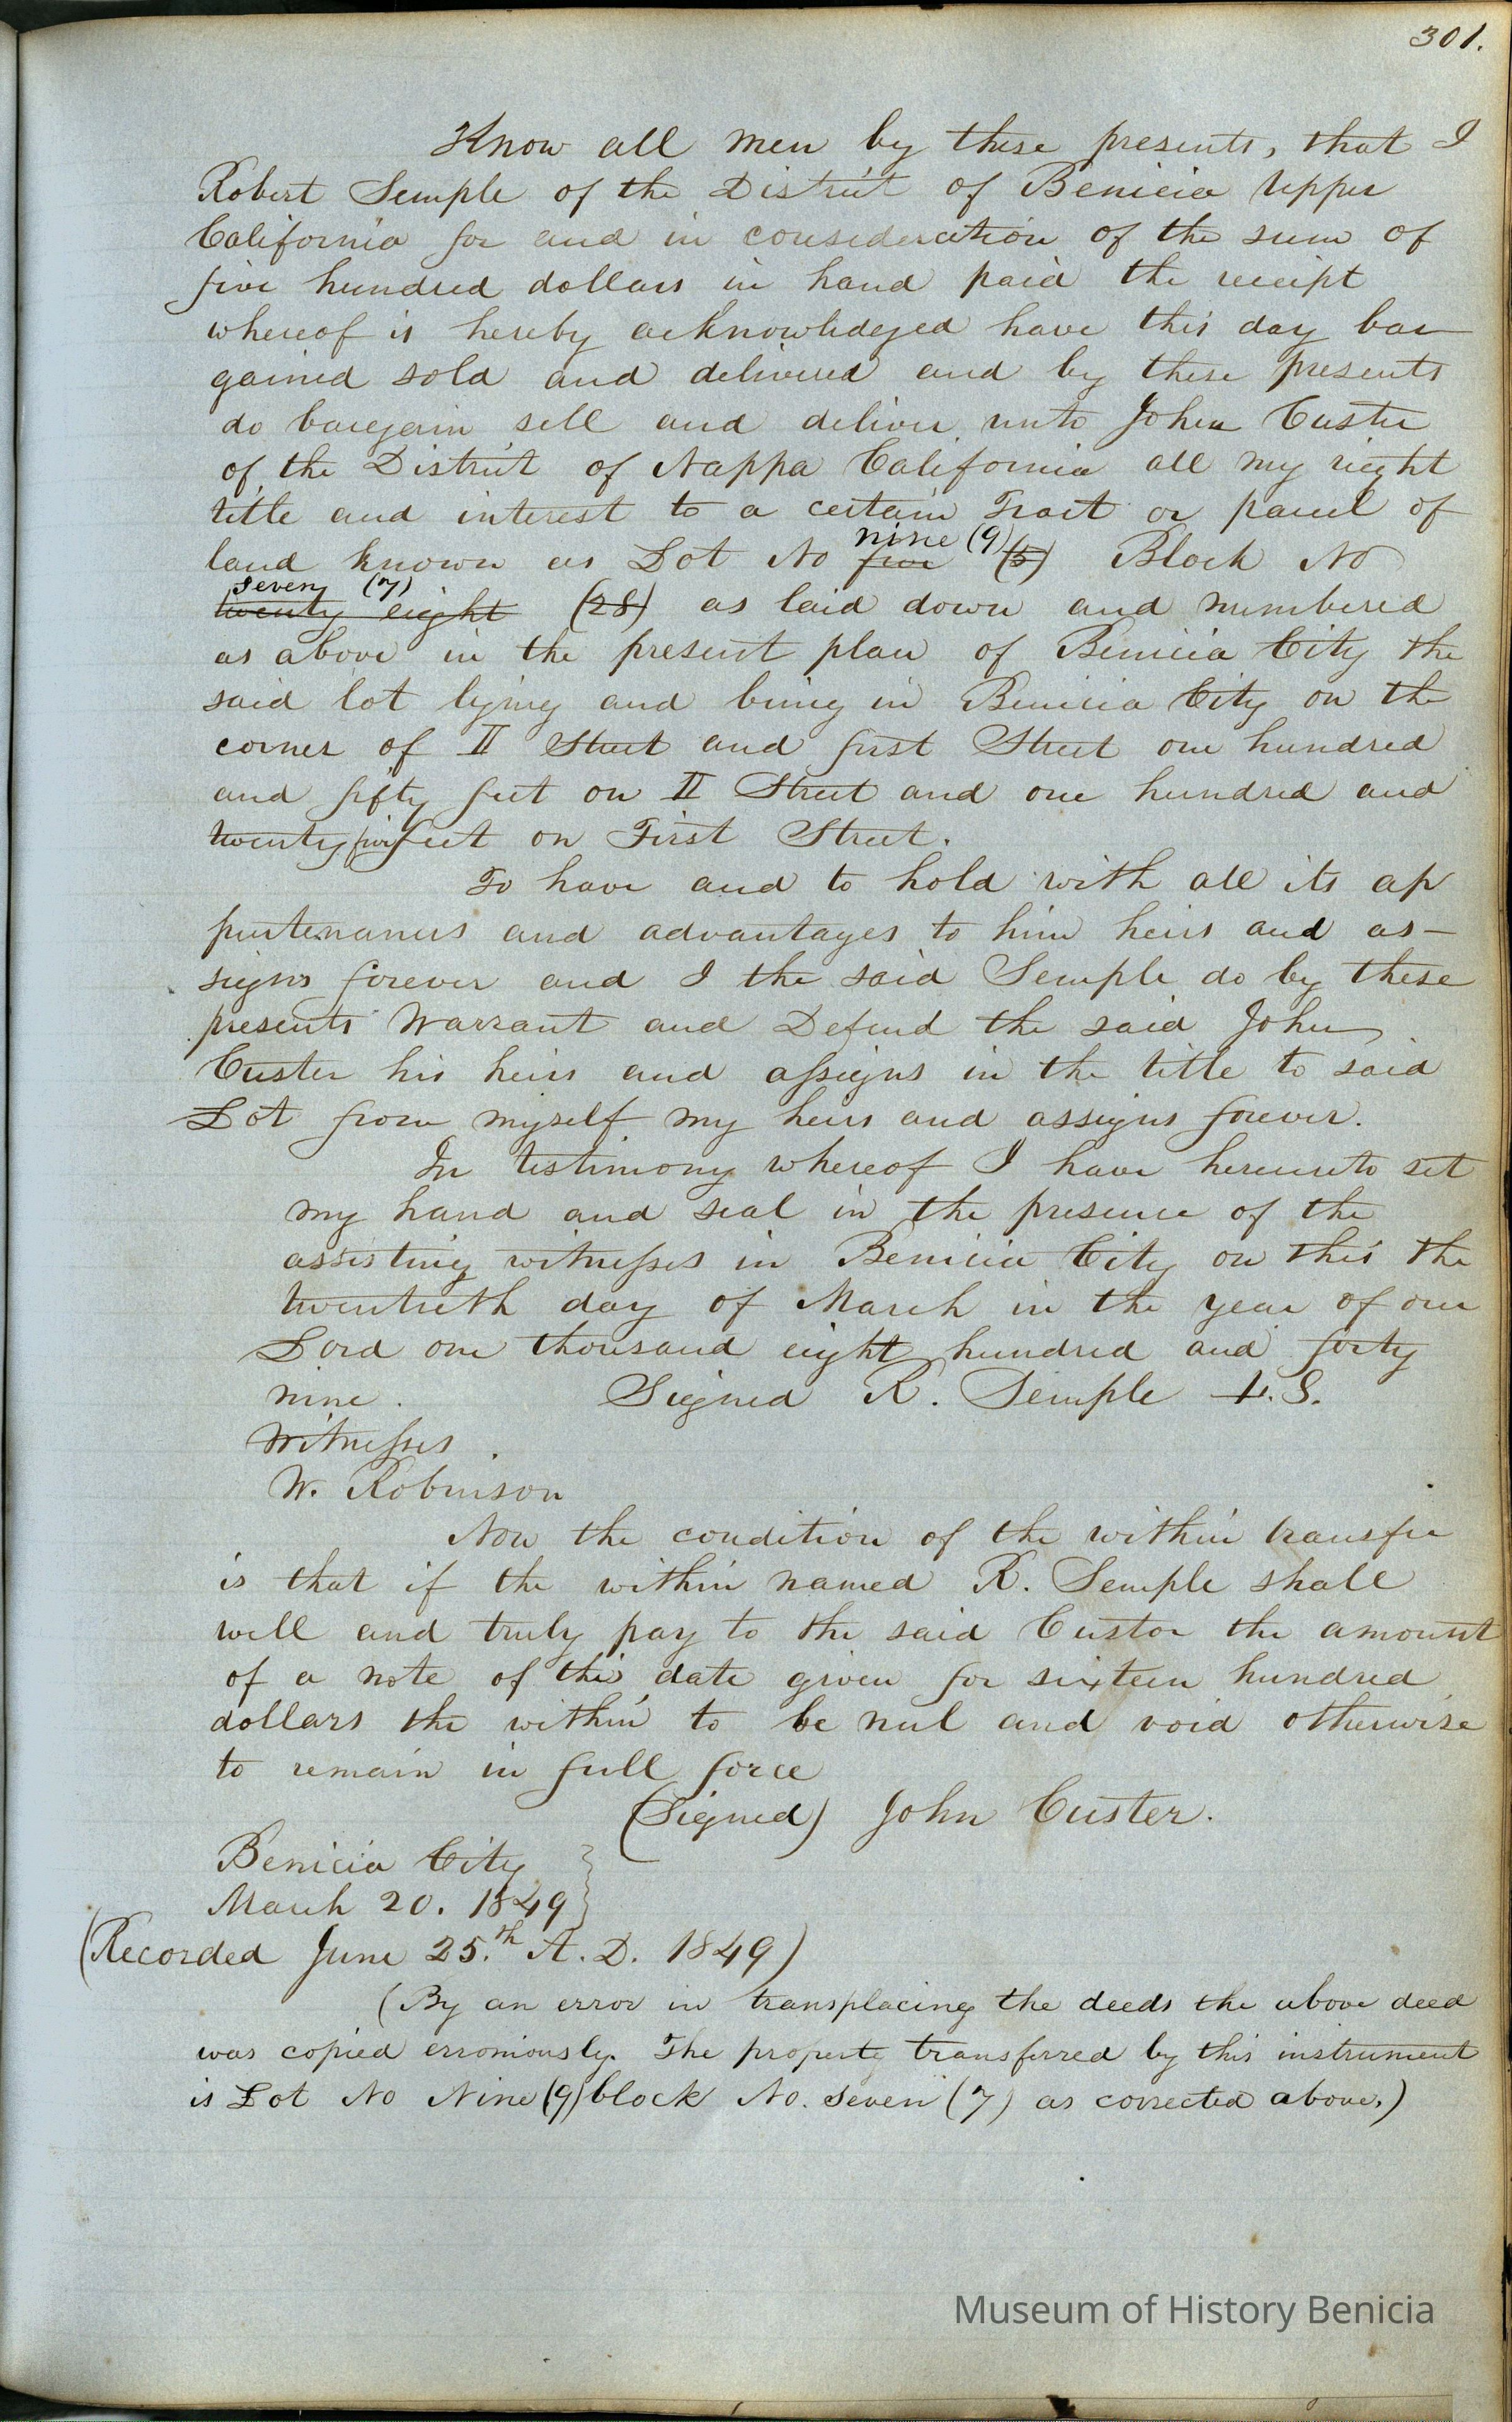 301.
Know all men by these presents, that I
Robert Semple of the District of Benicia Upper
California for and in consideration of the sum of
five hundred dollars in hand paid the receipt
whereof is hereby acknowledged have this day bar
gained sold and delivered and by these presents
do bargain sell and deliver unto John Custer
of the District of Nappa California all my right
title and interest to a certain Tract or parcel of
nine (9)
land known as Lot No five (5) Block No
seven (7)
twenty eight (28) as laid down and numbered
as above in the present plan of Benicia City the
said lot lying and being in Benicia City on the
corner of II Street and first Street one hundred
and fifty feet on II Street and one hundred and
twenty five feet on First Street.
To have and to hold with all its ap
purtenances and advantages to him heirs and as-
signs forever and I the said Semple do by these
presents Warrant and Defend the said John
Custer his heirs and assigns in the title to said
Lot from myself my heirs and assigns forever.
In testimony whereof I have hereunto set
my hand and seal in the presence of the
assisting witnesses in Benicia City on this the
twentieth day of March in the year of our
Lord one thousand eight hundred and forty
nine. Signed R. Semple L.S.
Witnesses.
W. Robinson
Now the condition of the within transfer
is that if the within named R. Semple shall
well and truly pay to the said Custor the amount
of a note of this date given for sixteen hundred
dollars the within to be nul and void otherwise
to remain in full force
(Signed) John Custer.
Benicia City
March 20. 1849
(Recorded June 25.th A.D. 1849)
(By an error in transplacing the deeds the above deed
was copied erroniously. The property transferred by this instrument
is Lot No Nine (9) block No. seven (7) as corrected above.)
Museum of History Benicia